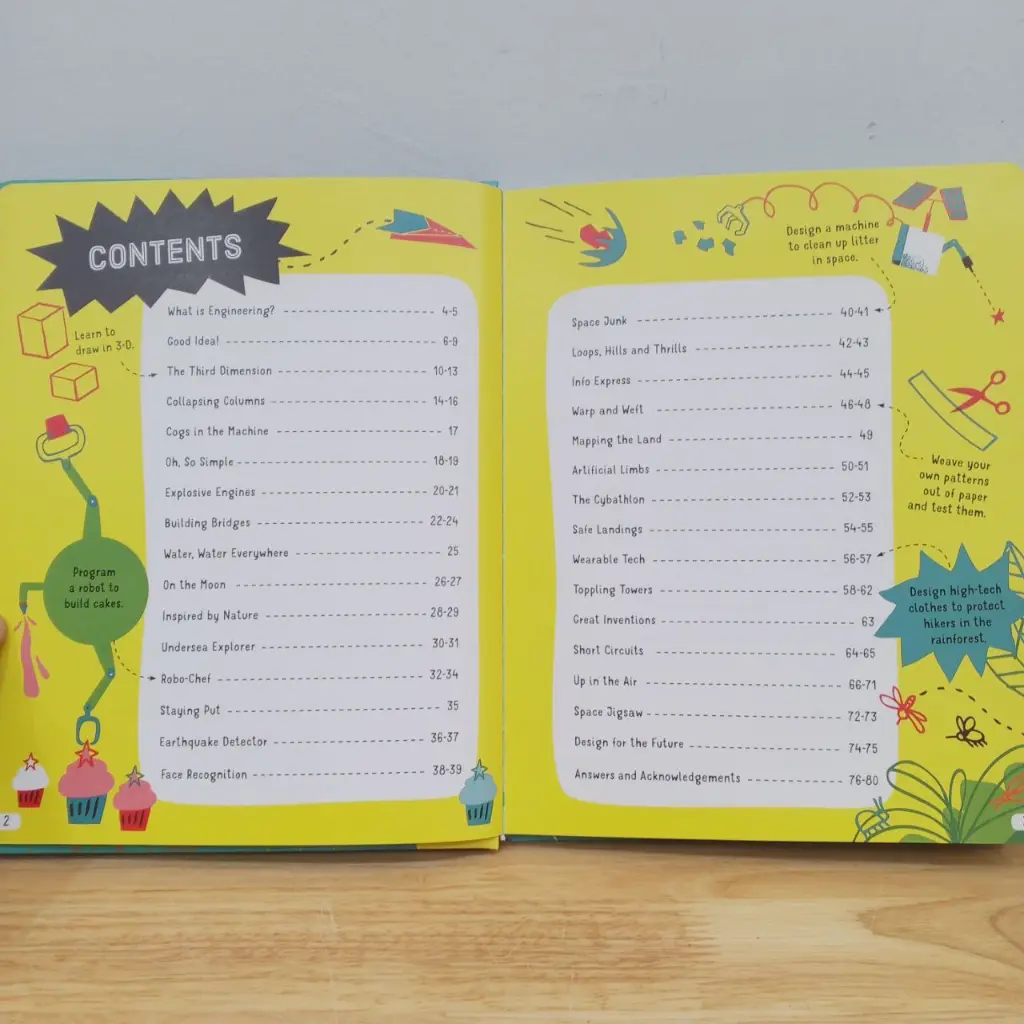 CONTENTS
Learn to
draw in 3-D.
What is Engineering? 4-5
Good Idea! 6-9
The Third Dimension 10-13
Collapsing Columns 14-16
Cogs in the Machine 17
Oh, So Simple 18-19
Explosive Engines 20-21
Building Bridges 22-24
Water, Water Everywhere 25
On the Moon 26-27
Inspired by Nature 28-29
Undersea Explorer 30-31
Robo-Chef 32-34
Staying Put 35
Earthquake Detector 36-37
Face Recognition 38-39
Program
a robot to
build cakes.
2
Design a machine
to clean up litter
in space.
Space Junk 40-41
Loops, Hills and Thrills 42-43
Info Express 44-45
Warp and Weft 46-48
Mapping the Land 49
Artificial Limbs 50-51
The Cybathlon 52-53
Safe Landings 54-55
Wearable Tech 56-57
Toppling Towers 58-62
Great Inventions 63
Short Circuits 64-65
Up in the Air 66-71
Space Jigsaw 72-73
Design for the Future 74-75
Answers and Acknowledgements 76-80
Weave your
own patterns
out of paper
and test them.
Design high-tech
clothes to protect
hikers in the
rainforest.